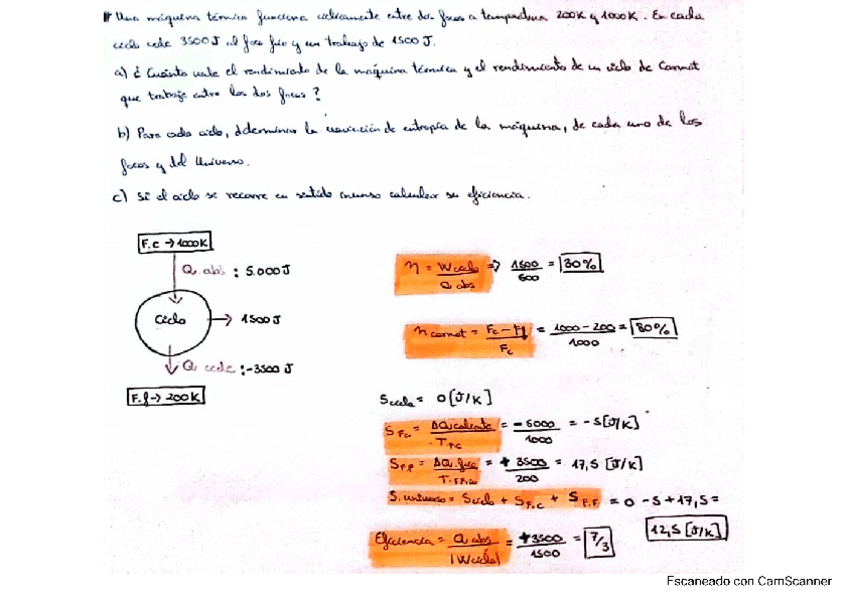 Una máquina térmica funciona cíclicamente entre dos focos a temperatura 200K y 1000K. En cada
ciclo cede 3500J al foco frío y un trabajo de 1500J.
a) ¿Cuánto vale el rendimiento de la máquina térmica y el rendimiento de un ciclo de Carnot
que trabaje entre los dos focos?
b) Para cada ciclo, determinar la variación de entropía de la máquina, de cada uno de los
focos y del Universo.
c) Si el ciclo se recorre en sentido inverso calcular su eficiencia.
F.c → 1000K
Q abs : 5.000J
Ciclo → 1500J
Q cede : -3500J
F.f → 200K
η = Wciclo / Q abs => 1500 / 500 = 30%
η carnot = Fc - Ff / Fc = 1000 - 200 / 1000 = 80%
Sciclo = 0 [J/K]
S F.c = ΔQ caliente / T F.C = -5000 / 1000 = -5 [J/K]
S F.F = ΔQ frío / T. F. Frío = +3500 / 200 = 17,5 [J/K]
S. universo = Sciclo + S F.C + S F.F = 0 - 5 + 17,5 =
12,5 [J/K]
Eficiencia = Q abs / |Wciclo| = +3500 / 1500 = 7/3
Escaneado con CamScanner